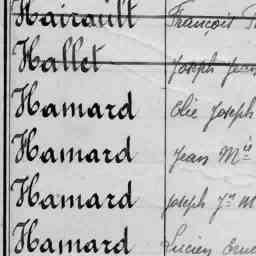 Hairault François
Hallet Joseph Jean
Hamard Elie Joseph
Hamard Jean Mie
Hamard Joseph Jn M
Hamard Lucien